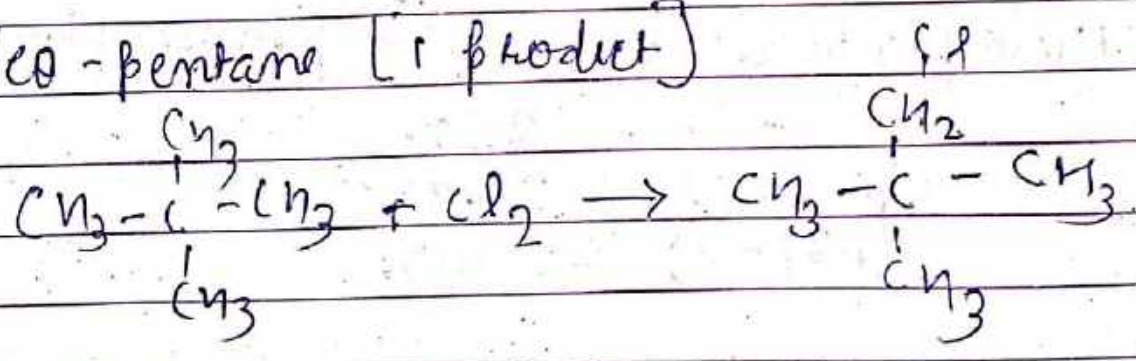 eo-pentane [1 product]
Cl
CH3 CH2
CH3-C-CH3 + Cl2 → CH3-C-CH3
CH3 CH3